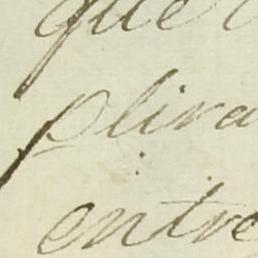 que
plira
entre